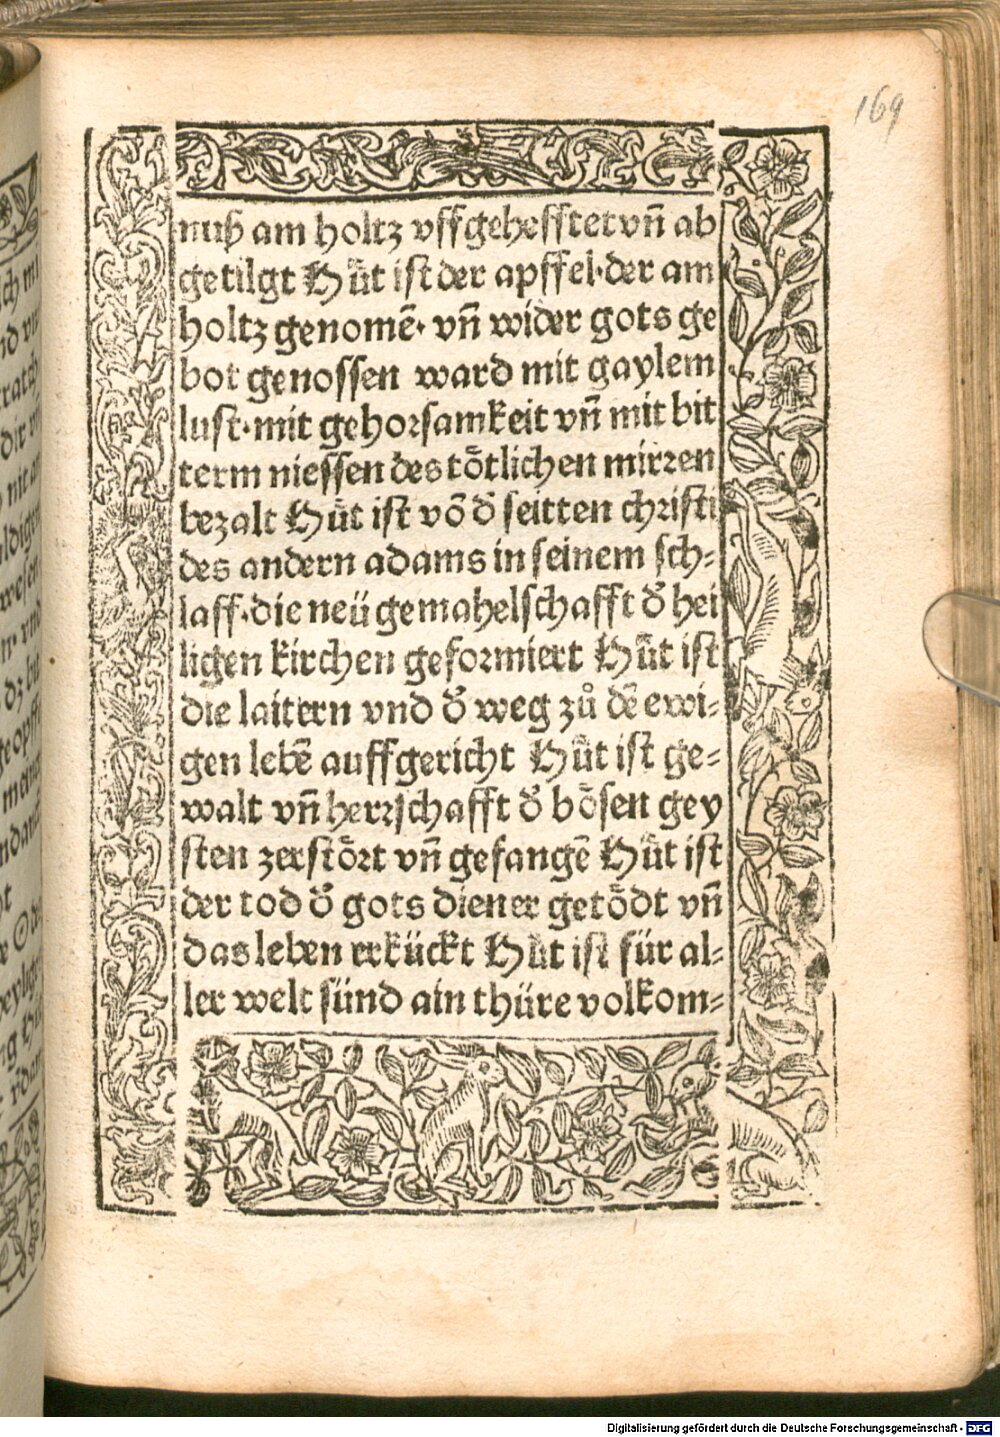 169
nuß am holtz vffgehefftet vñ ab
getilgt Hüt ist der apffel·der am
holtz genomē· vñ wider gots ge
bot genossen ward mit gaylem
lust·mit gehorsamkeit vñ mit bit
term niessen des tötlichen mirren
bezalt Hüt ist vō d̄ seitten christi
des andern adams in seinem sch⸗
laff·die neü gemahelschafft d̄ hei
ligen kirchen geformiert Hüt ist
die laitern vnd d̄ weg zů dē ewi⸗
gen lebē auffgericht Hüt ist ge⸗
walt vñ herrschafft d̄ bösen gey
sten zerstört vñ gefangē Hüt ist
der tod d̄ gots diener getödt vñ
das leben erkückt Hüt ist für al⸗
ler welt sünd ain thüre volkom⸗
Digitalisierung gefördert durch die Deutsche Forschungsgemeinschaft - DFG